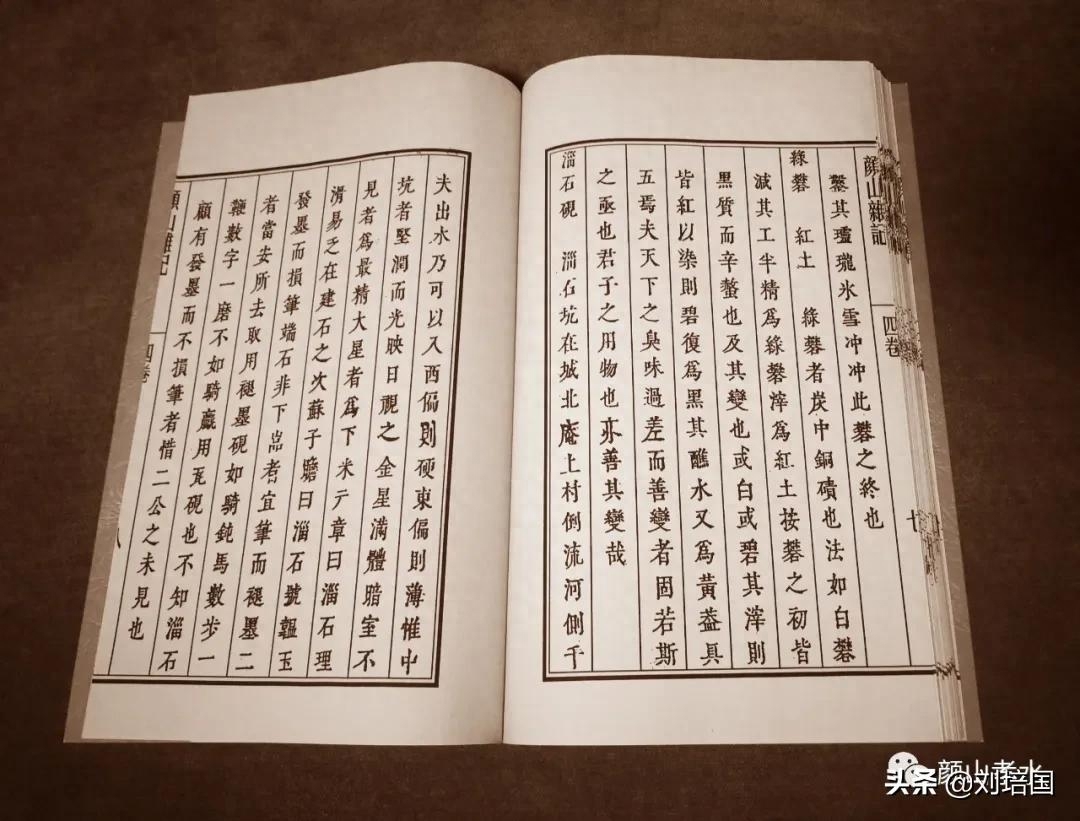 顏山雜記 四卷 七
鑿其瓏氷雪冲冲此礬之終也
綠礬 紅土 綠礬者炭中銅磧也法如白礬
減其工半精為綠礬滓為紅土按礬之初皆
黑質而辛螫也及其變也或白或碧其滓則
皆紅以染則碧復為黑其醮水又為黃葢具
五焉夫天下之臭味過差而善變者固若斯
之亟也君子之用物也亦善其變哉
淄石硯 淄石坑在城北庵上村倒流河側千
夫出水乃可以入西偏則硬東偏則薄惟中
坑者堅潤而光映日視之金星滿體暗室不
見者為最精大星者為下米亍章曰淄石理
滑易乏在建石之次蘇子瞻曰淄石號韞玉
發墨而損筆端石非下嵓者宜筆而褪墨二
者當安所去取用褪墨硯如騎鈍馬數步一
鞭數字一磨不如騎驘用瓦硯也不知淄石
顧有發墨而不損筆者惜二公之未見也
顏山雜記 四卷 八
颜山孝水
头条 @刘培国